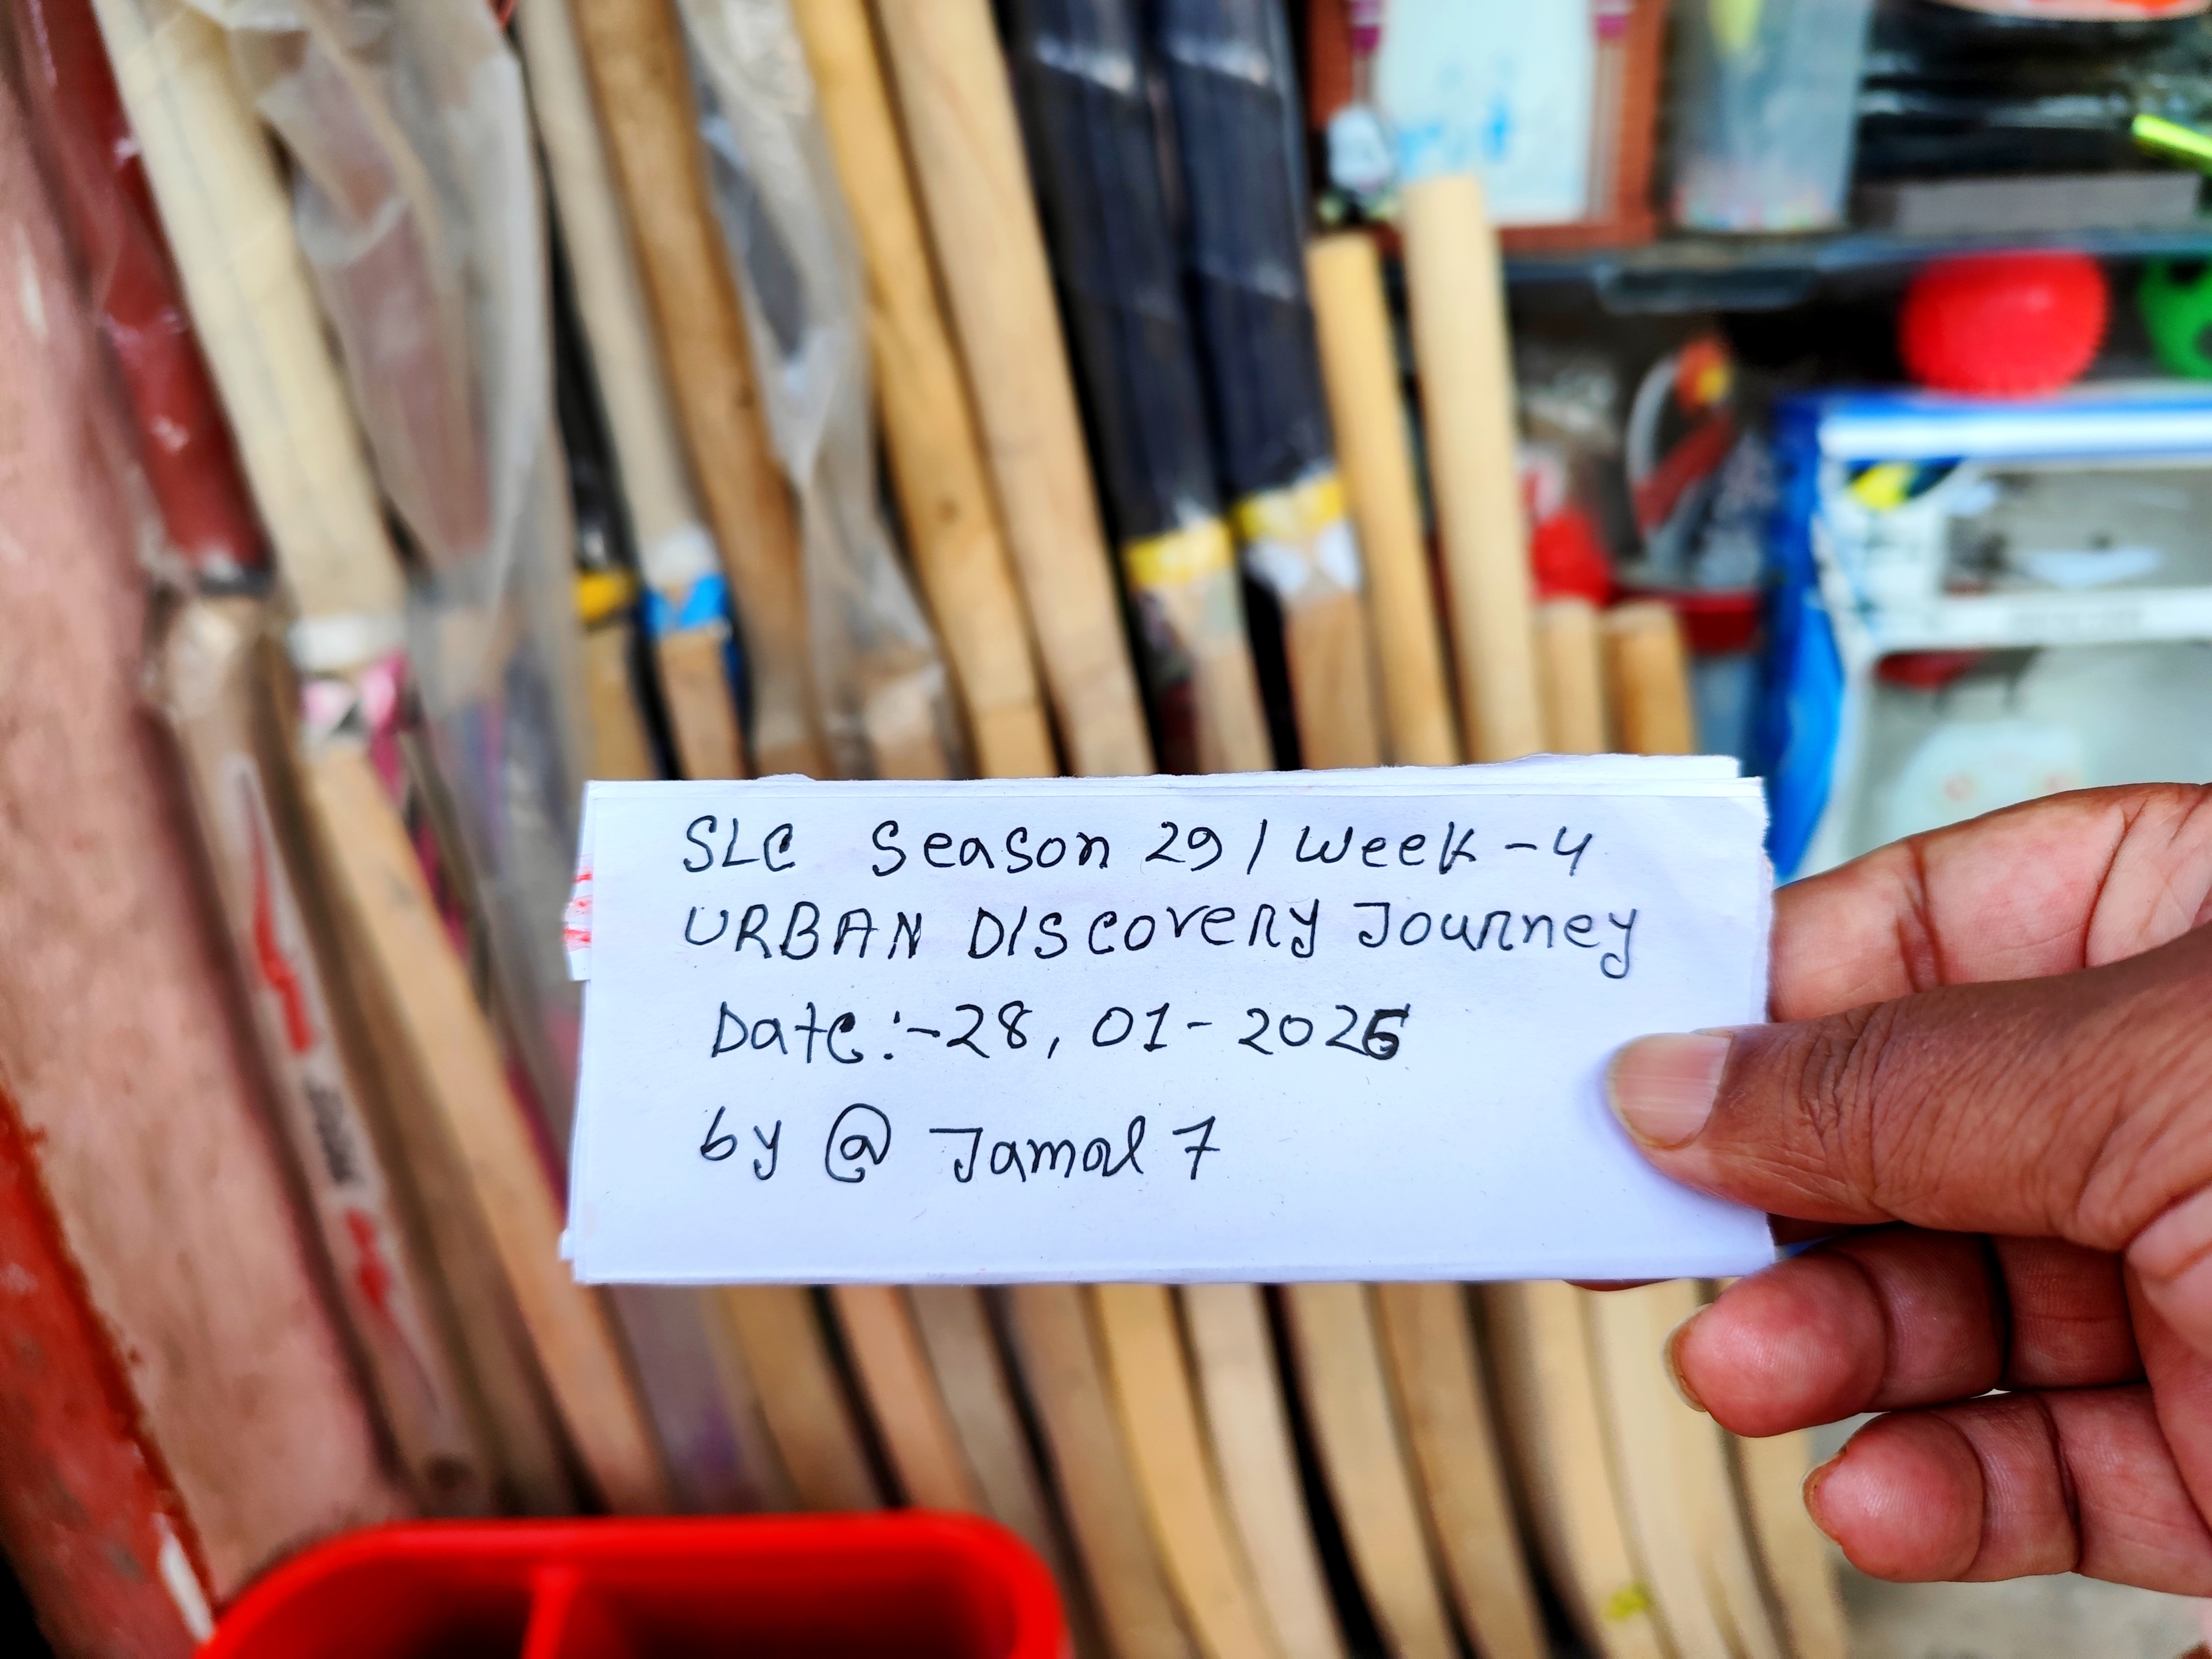 SLC Season 29 / Week - 4
URBAN DIScovery Journey
Date:- 28, 01 - 2026
by @ Jamal 7